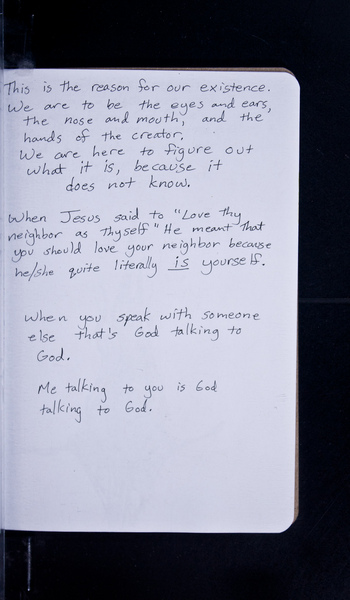 This is the reason for our existence.
We are to be the eyes and ears,
the nose and mouth, and the
hands of the creator.
We are here to figure out
what it is, because it
does not know.
When Jesus said to "Love thy
neighbor as thyself" He meant that
you should love your neighbor because
he/she quite literally is yourself.
When you speak with someone
else that's God talking to
God.
Me talking to you is God
talking to God.